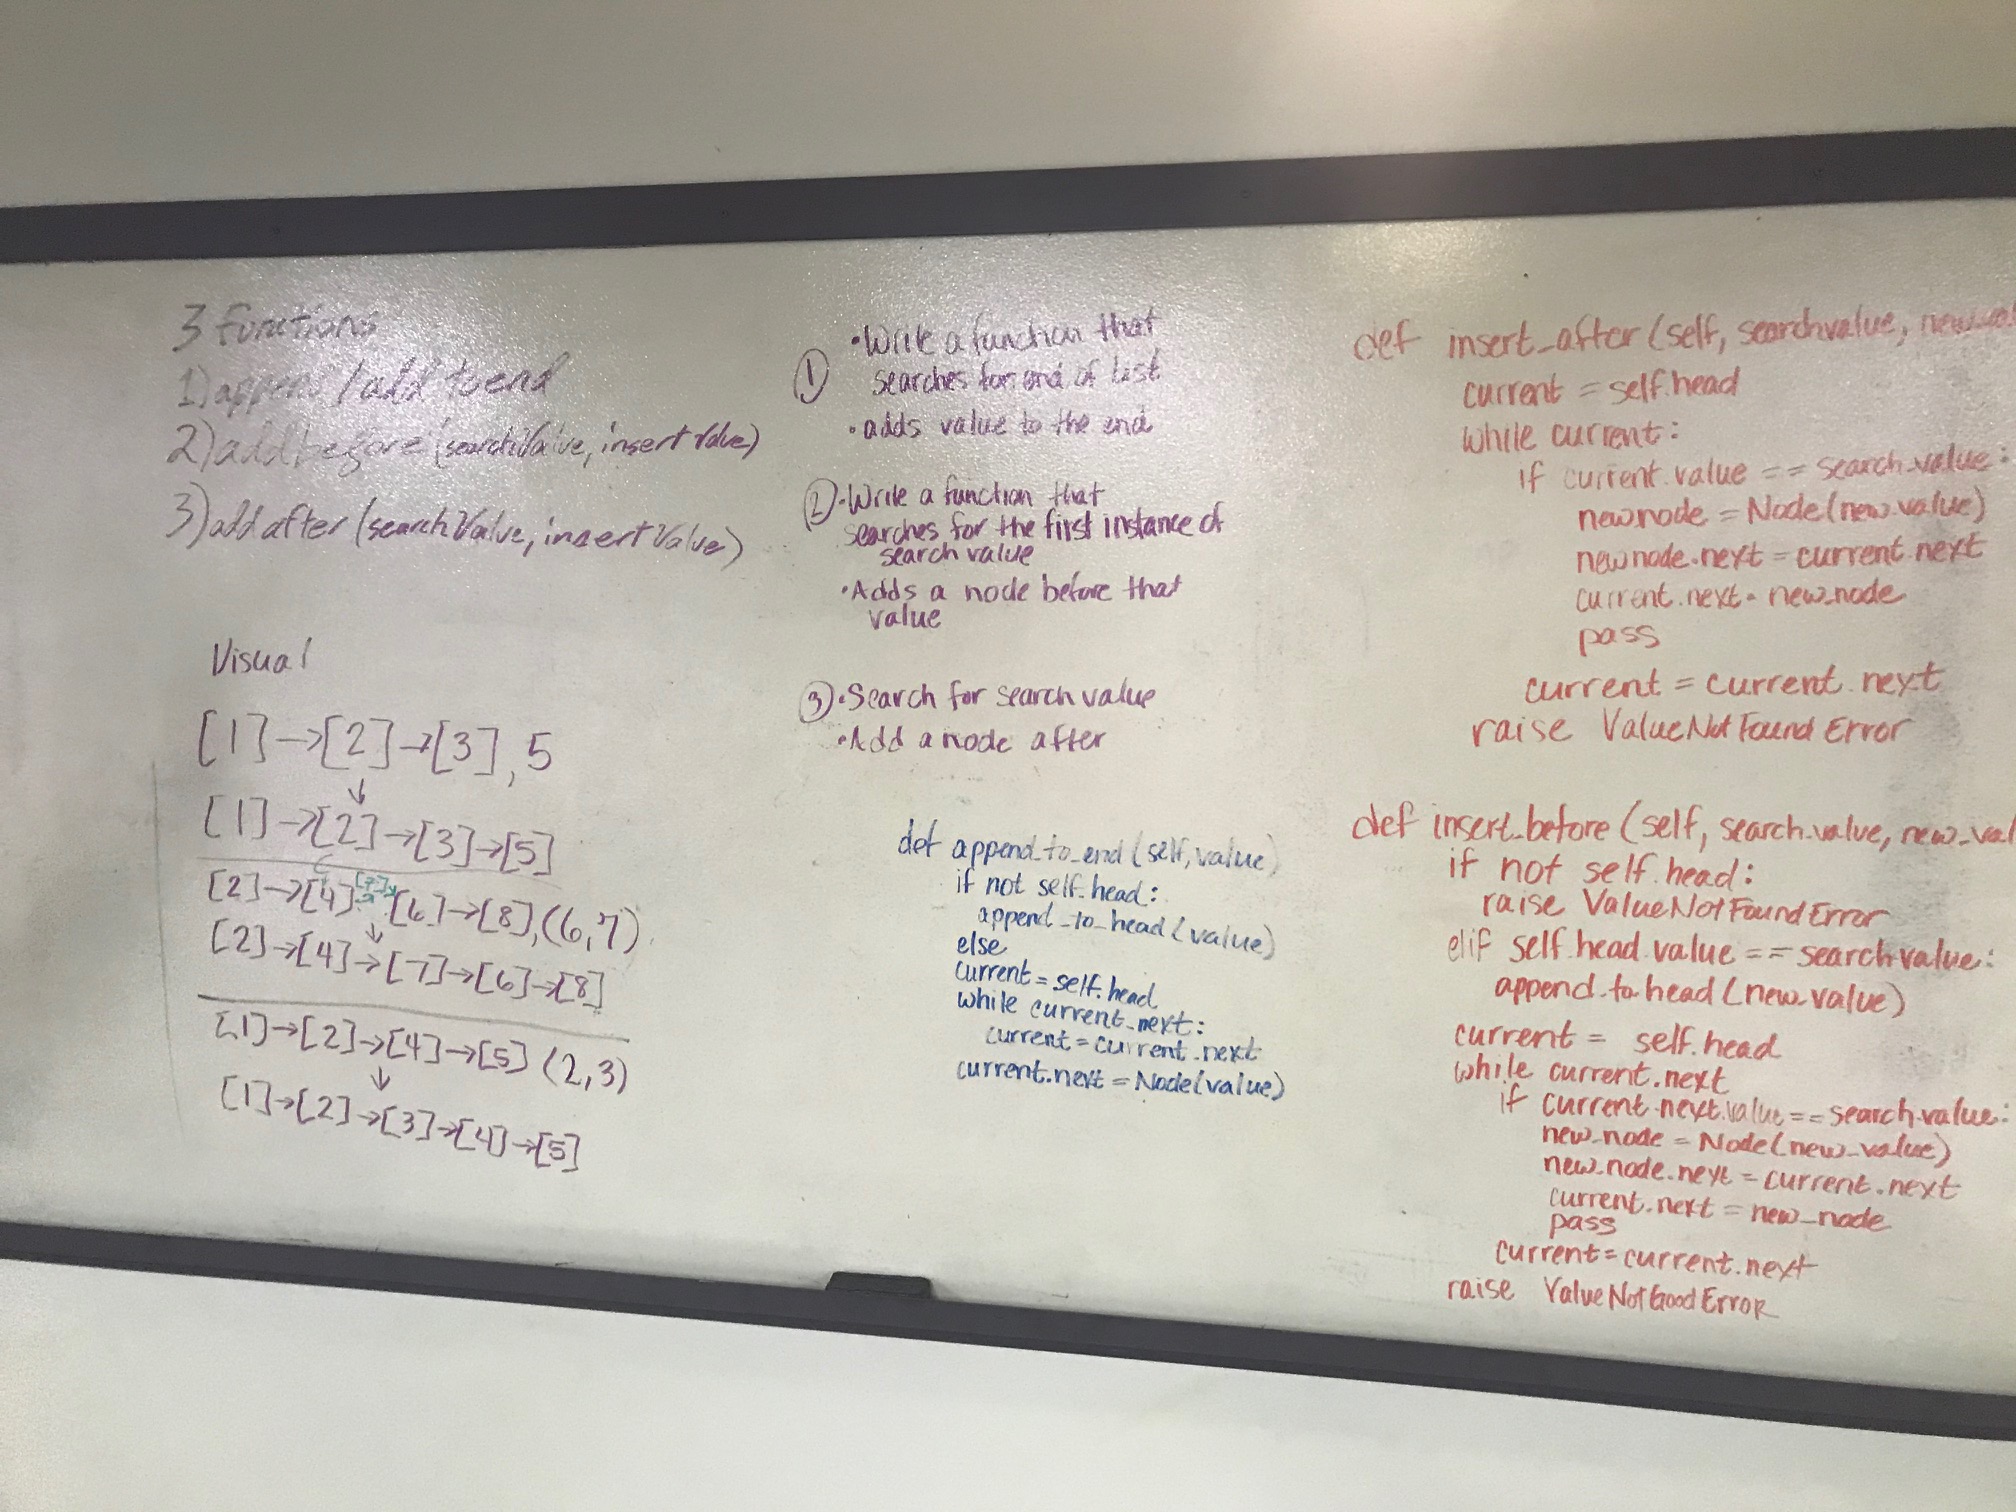 3 functions
1) append / add to end
2) add before (searchValue, insertValue)
3) add after (searchValue, insertValue)
Visual
[1]→[2]→[3], 5
↓
[1]→[2]→[3]→[5]
[2]→[4] [7] [6]→[8], (6,7)
↓
[2]→[4]→[7]→[6]→[8]
[1]→[2]→[4]→[5] (2,3)
↓
[1]→[2]→[3]→[4]→[5]
① • Write a function that
searches for end of list
• adds value to the end
② • Write a function that
searches for the first instance of
search value
• Adds a node before that
value
③ • Search for search value
• Add a node after
def append_to_end(self, value)
if not self.head:
append_to_head(value)
else
current = self.head
while current.next:
current = current.next
current.next = Node(value)
def insert_after(self, searchvalue, new_val
current = self.head
while current:
if current.value == search.value:
newnode = Node(new.value)
newnode.next = current.next
current.next = new_node
pass
current = current.next
raise ValueNotFoundError
def insert_before(self, search_value, new_val
if not self.head:
raise ValueNotFoundError
elif self.head.value == searchvalue:
append_to_head(new_value)
current = self.head
while current.next
if current.next.value == search.value:
new_node = Node(new_value)
new_node.next = current.next
current.next = new_node
pass
current = current.next
raise ValueNotGoodError